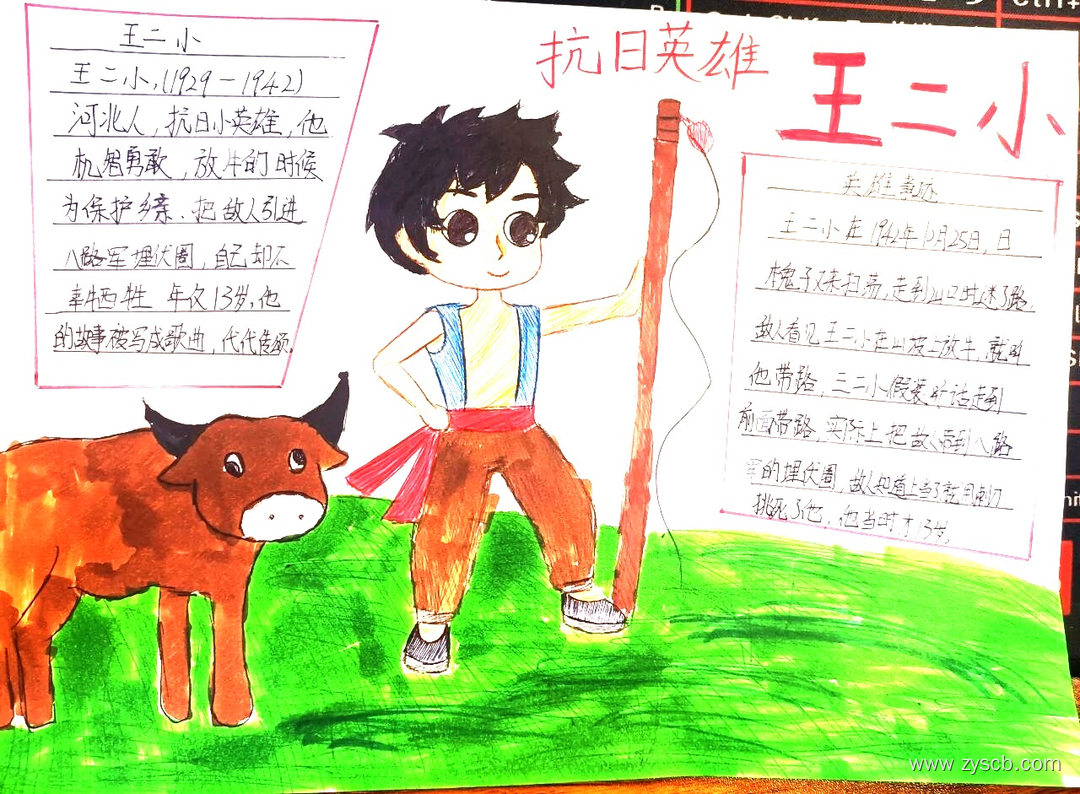 抗日英雄 王二小
王二小
王二小,(1929-1942)
河北人,抗日小英雄,他
机智勇敢,放牛的时候
为保护乡亲、把敌人引进
八路军埋伏圈,自己却不
幸牺牲 年仅13岁,他
的故事被写成歌曲,代代传颂。
英雄事迹
王二小在1942年10月25日,日
本鬼子又来扫荡,走到山口时迷了路,
敌人看见王二小在山坡上放牛,就叫
他带路,王二小假装听话走到
前面带路,实际上把敌人带到八路
军的埋伏圈,敌人知道上当了就用刺刀
挑死了他,他当时才13岁。
www.zyscb.com